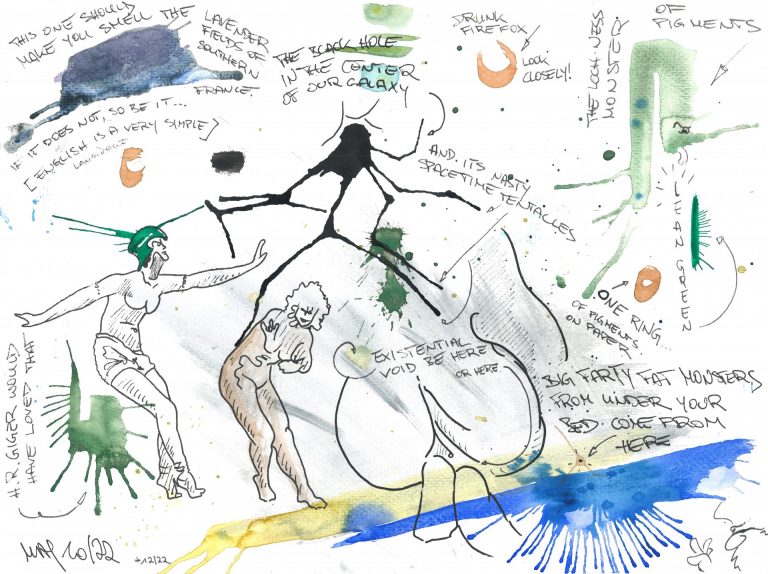 THIS ONE SHOULD
MAKE YOU SMELL THE LAVENDER
FIELDS OF
SOUTHERN
FRANCE.
IF IT DOES NOT, SO BE IT...
[ENGLISH IS A VERY SIMPLE]
LANGUAGE
THE BLACK HOLE
IN THE CENTER
OF OUR GALAXY
AND ITS NASTY
SPACETIME TENTACLES
DRUNK
FIREFOX
LOOK
CLOSELY!
THE LOCH NESS
MONSTER
OF
PIGMENTS
LEAN GREEN
ONE RING...
OF PIGMENTS
ON PAPER
EXISTENTIAL
VOID BE HERE
OR HERE
BIG FARTY FAT MONSTERS
FROM UNDER YOUR
BED COME FROM
HERE
H.R. GIGER WOULD
HAVE LOVED THAT
MAY 10/22
+12/22